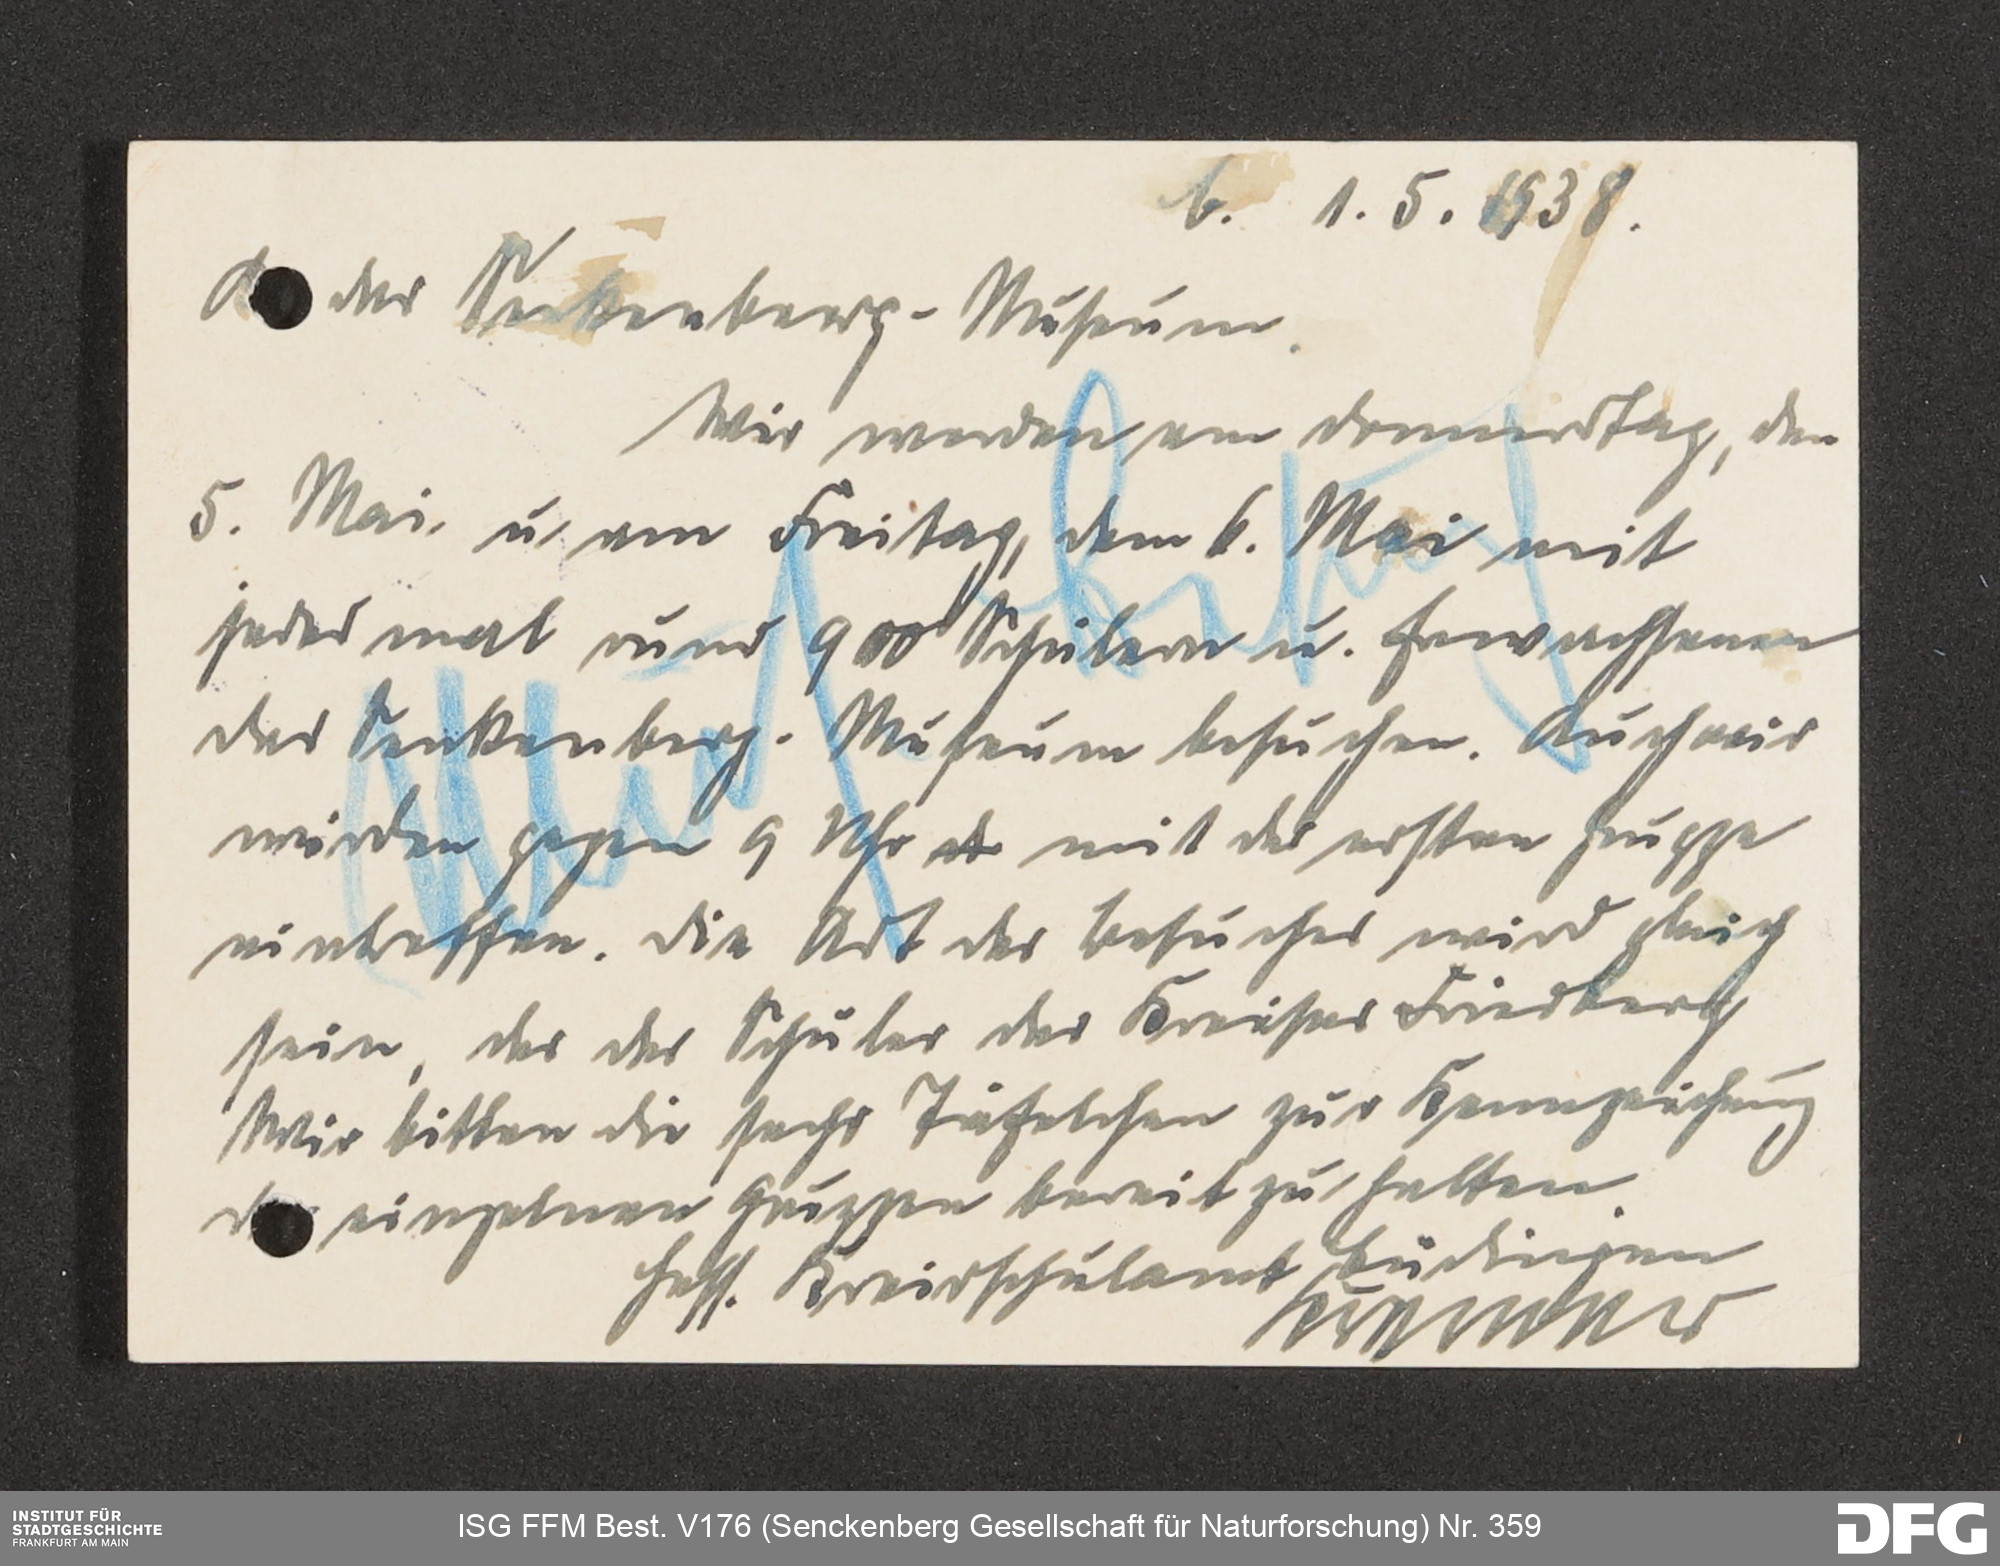 b. 1.5.1938.
das Senkenberg-Museum.
Wir werden am Donnerstag, den
5. Mai. u. am Freitag, dem 6. Mai mit
jedesmal rund 900 Schülern u. Erwachsenen
das Senkenberg-Museum besuchen. Auch wir
würden gegen 9 Uhr mit der ersten Gruppe
eintreffen. Die Art des Besuches wird gleich
sein, der der Schüler des Kreises Friedberg
Wir bitten die sechs Täfelchen zur Kennzeichung
der einzelnen Gruppen bereit zu halten.
Hess. Kreisschulamt Büdingen
INSTITUT FÜR
STADTGESCHICHTE
FRANKFURT AM MAIN
ISG FFM Best. V176 (Senckenberg Gesellschaft für Naturforschung) Nr. 359
DFG